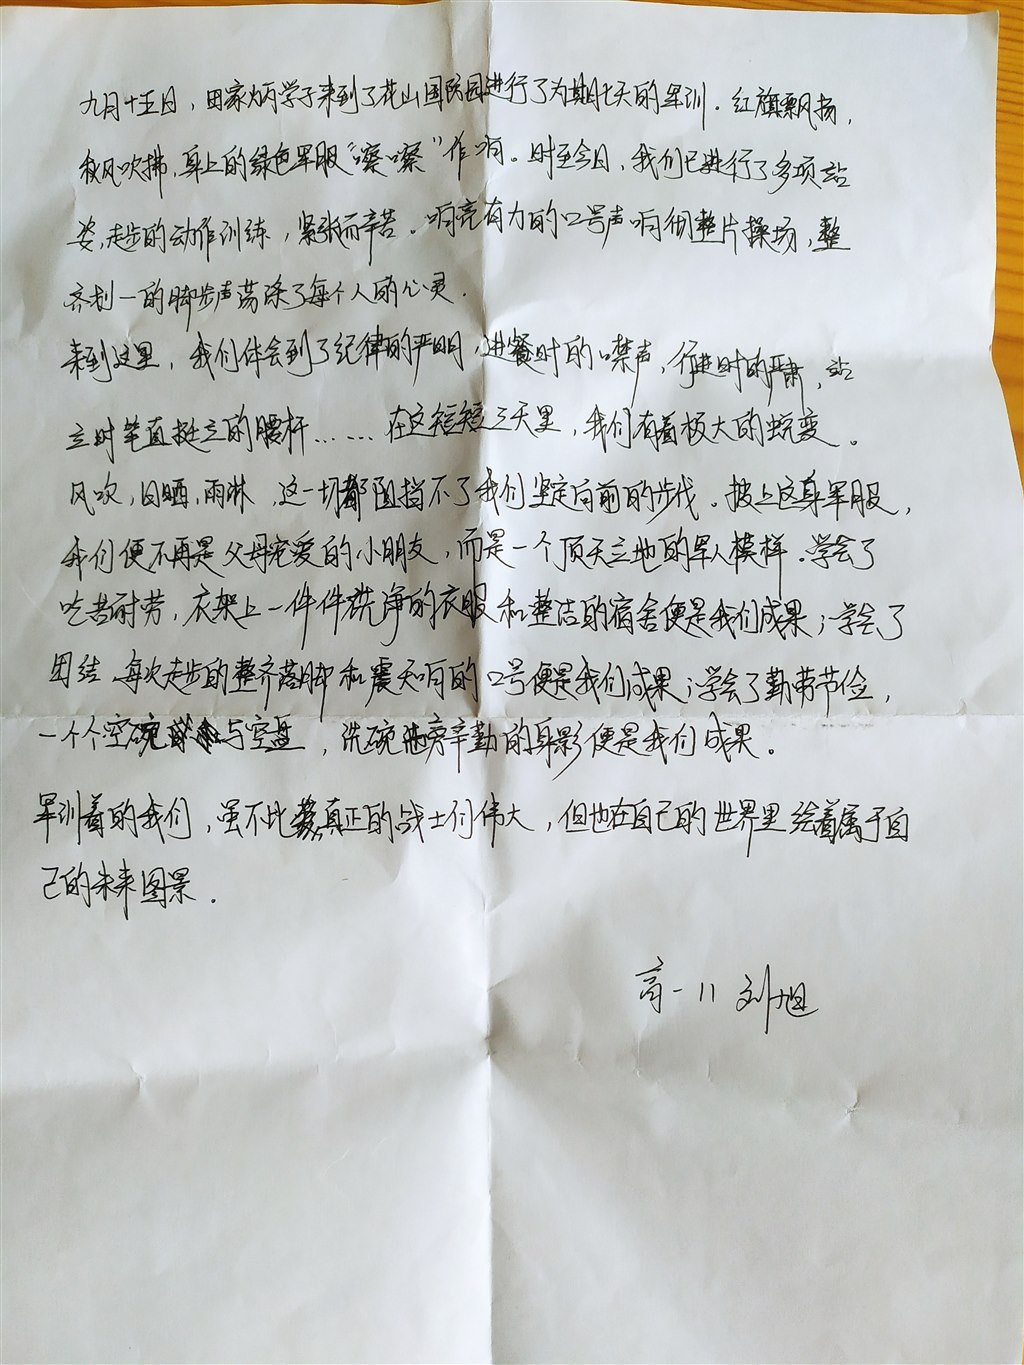 九月十五日，田家炳学子来到了花山国防园进行了为期七天的军训．红旗飘扬，
秋风吹拂，身上的绿色军服“嚓嚓”作响。时至今日，我们已进行了多项站
姿，走步的动作训练，紧张而辛苦。响亮有力的口号声响彻整片操场，整
齐划一的脚步声荡涤了每个人的心灵．
来到这里，我们体会到了纪律的严明，进餐时的噤声，行进时的严肃，站
立时笔直挺立的腰杆……在这短短三天里，我们有着极大的蜕变。
风吹，日晒，雨淋，这一切都阻挡不了我们坚定向前的步伐。披上这身军服，
我们便不再是父母宠爱的小朋友，而是一个顶天立地的军人模样．学会了
吃苦耐劳，衣架上一件件洗净的衣服和整洁的宿舍便是我们成果；学会了
团结，每次走步的整齐落脚和震天响的口号便是我们成果；学会了勤劳节俭，
一个个空碗与空盘，洗碗池旁辛勤的身影便是我们成果。
军训着的我们，虽不比真正的战士们伟大，但也在自己的世界里绘着属于自
己的未来图景．
高一11 刘旭